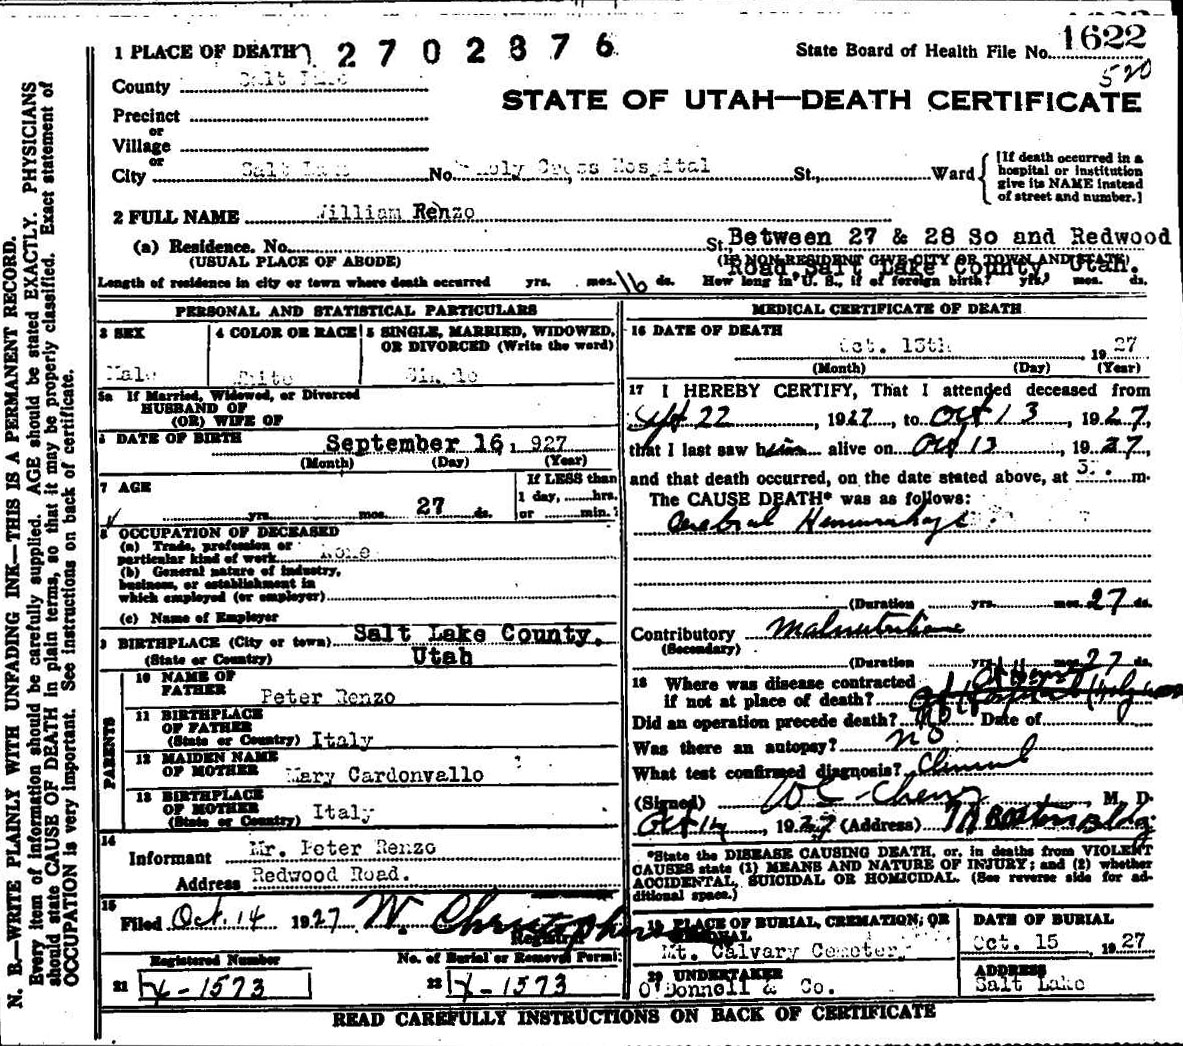 N. B.—WRITE PLAINLY WITH UNFADING INK—THIS IS A PERMANENT RECORD.
Every item of information should be carefully supplied. AGE should be stated EXACTLY. PHYSICIANS
should state CAUSE OF DEATH in plain terms, so that it may be properly classified. Exact statement of
OCCUPATION is very important. See instructions on back of certificate.
1 PLACE OF DEATH 2702876
State Board of Health File No. 1622
520
County Salt Lake
STATE OF UTAH—DEATH CERTIFICATE
Precinct
or
Village
or
City Salt Lake No. Holy Cross Hospital St., Ward
[If death occurred in a
hospital or institution
give its NAME instead
of street and number.]
2 FULL NAME William Renzo
(a) Residence. No. St., Between 27 & 28 So and Redwood
(USUAL PLACE OF ABODE) (IF NON-RESIDENT GIVE CITY OR TOWN AND STATE)
Road Salt Lake County, Utah.
Length of residence in city or town where death occurred yrs. mos. 16 ds. How long in U. S., if of foreign birth? yrs. mos. ds.
PERSONAL AND STATISTICAL PARTICULARS
3 SEX
Male
4 COLOR OR RACE
White
5 SINGLE, MARRIED, WIDOWED,
OR DIVORCED (Write the word)
Single
5a If Married, Widowed, or Divorced
HUSBAND OF
(OR) WIFE OF
6 DATE OF BIRTH September 16, 927
(Month) (Day) (Year)
7 AGE
yrs. mos. 27 ds.
If LESS than
1 day, hrs.
or min.?
8 OCCUPATION OF DECEASED
(a) Trade, profession or
particular kind of work None
(b) General nature of industry,
business, or establishment in
which employed (or employer)
(c) Name of Employer
9 BIRTHPLACE (City or town) Salt Lake County,
(State or Country) Utah
PARENTS
10 NAME OF
FATHER Peter Renzo
11 BIRTHPLACE
OF FATHER
(State or Country) Italy
12 MAIDEN NAME
OF MOTHER Mary Cardonvallo
13 BIRTHPLACE
OF MOTHER
(State or Country) Italy
14
Informant Mr. Peter Renzo
Address Redwood Road.
15
Filed Oct. 14 1927 W. Christopherson
Registrar
Registered Number
21 X-1573
No. of Burial or Removal Permit
22 X-1573
MEDICAL CERTIFICATE OF DEATH
16 DATE OF DEATH
Oct. 13th 1927
(Month) (Day) (Year)
17 I HEREBY CERTIFY, That I attended deceased from
Sept 22, 1927, to Oct 13, 1927,
that I last saw him alive on Oct 13, 1927,
and that death occurred, on the date stated above, at 3 m.
The CAUSE DEATH* was as follows:
Cerebral Hemorrhage
(Duration yrs. mos. 27 ds.
Contributory Malnutrition
(Secondary)
(Duration yrs. mos. 27 ds.
18 Where was disease contracted At Home
if not at place of death?
Did an operation precede death? No Date of
Was there an autopsy? no
What test confirmed diagnosis? Clinical
(Signed) M. D.
Oct 14, 1927 (Address) Boston Bldg
*State the DISEASE CAUSING DEATH, or, in deaths from VIOLENT
CAUSES state (1) MEANS AND NATURE OF INJURY; and (2) whether
ACCIDENTAL, SUICIDAL OR HOMICIDAL. (See reverse side for ad-
ditional space.)
19 PLACE OF BURIAL, CREMATION, OR
REMOVAL
Mt. Calvary Cemetery
DATE OF BURIAL
Oct. 15 1927
20 UNDERTAKER
O'Donnell & Co.
ADDRESS
Salt Lake
READ CAREFULLY INSTRUCTIONS ON BACK OF CERTIFICATE